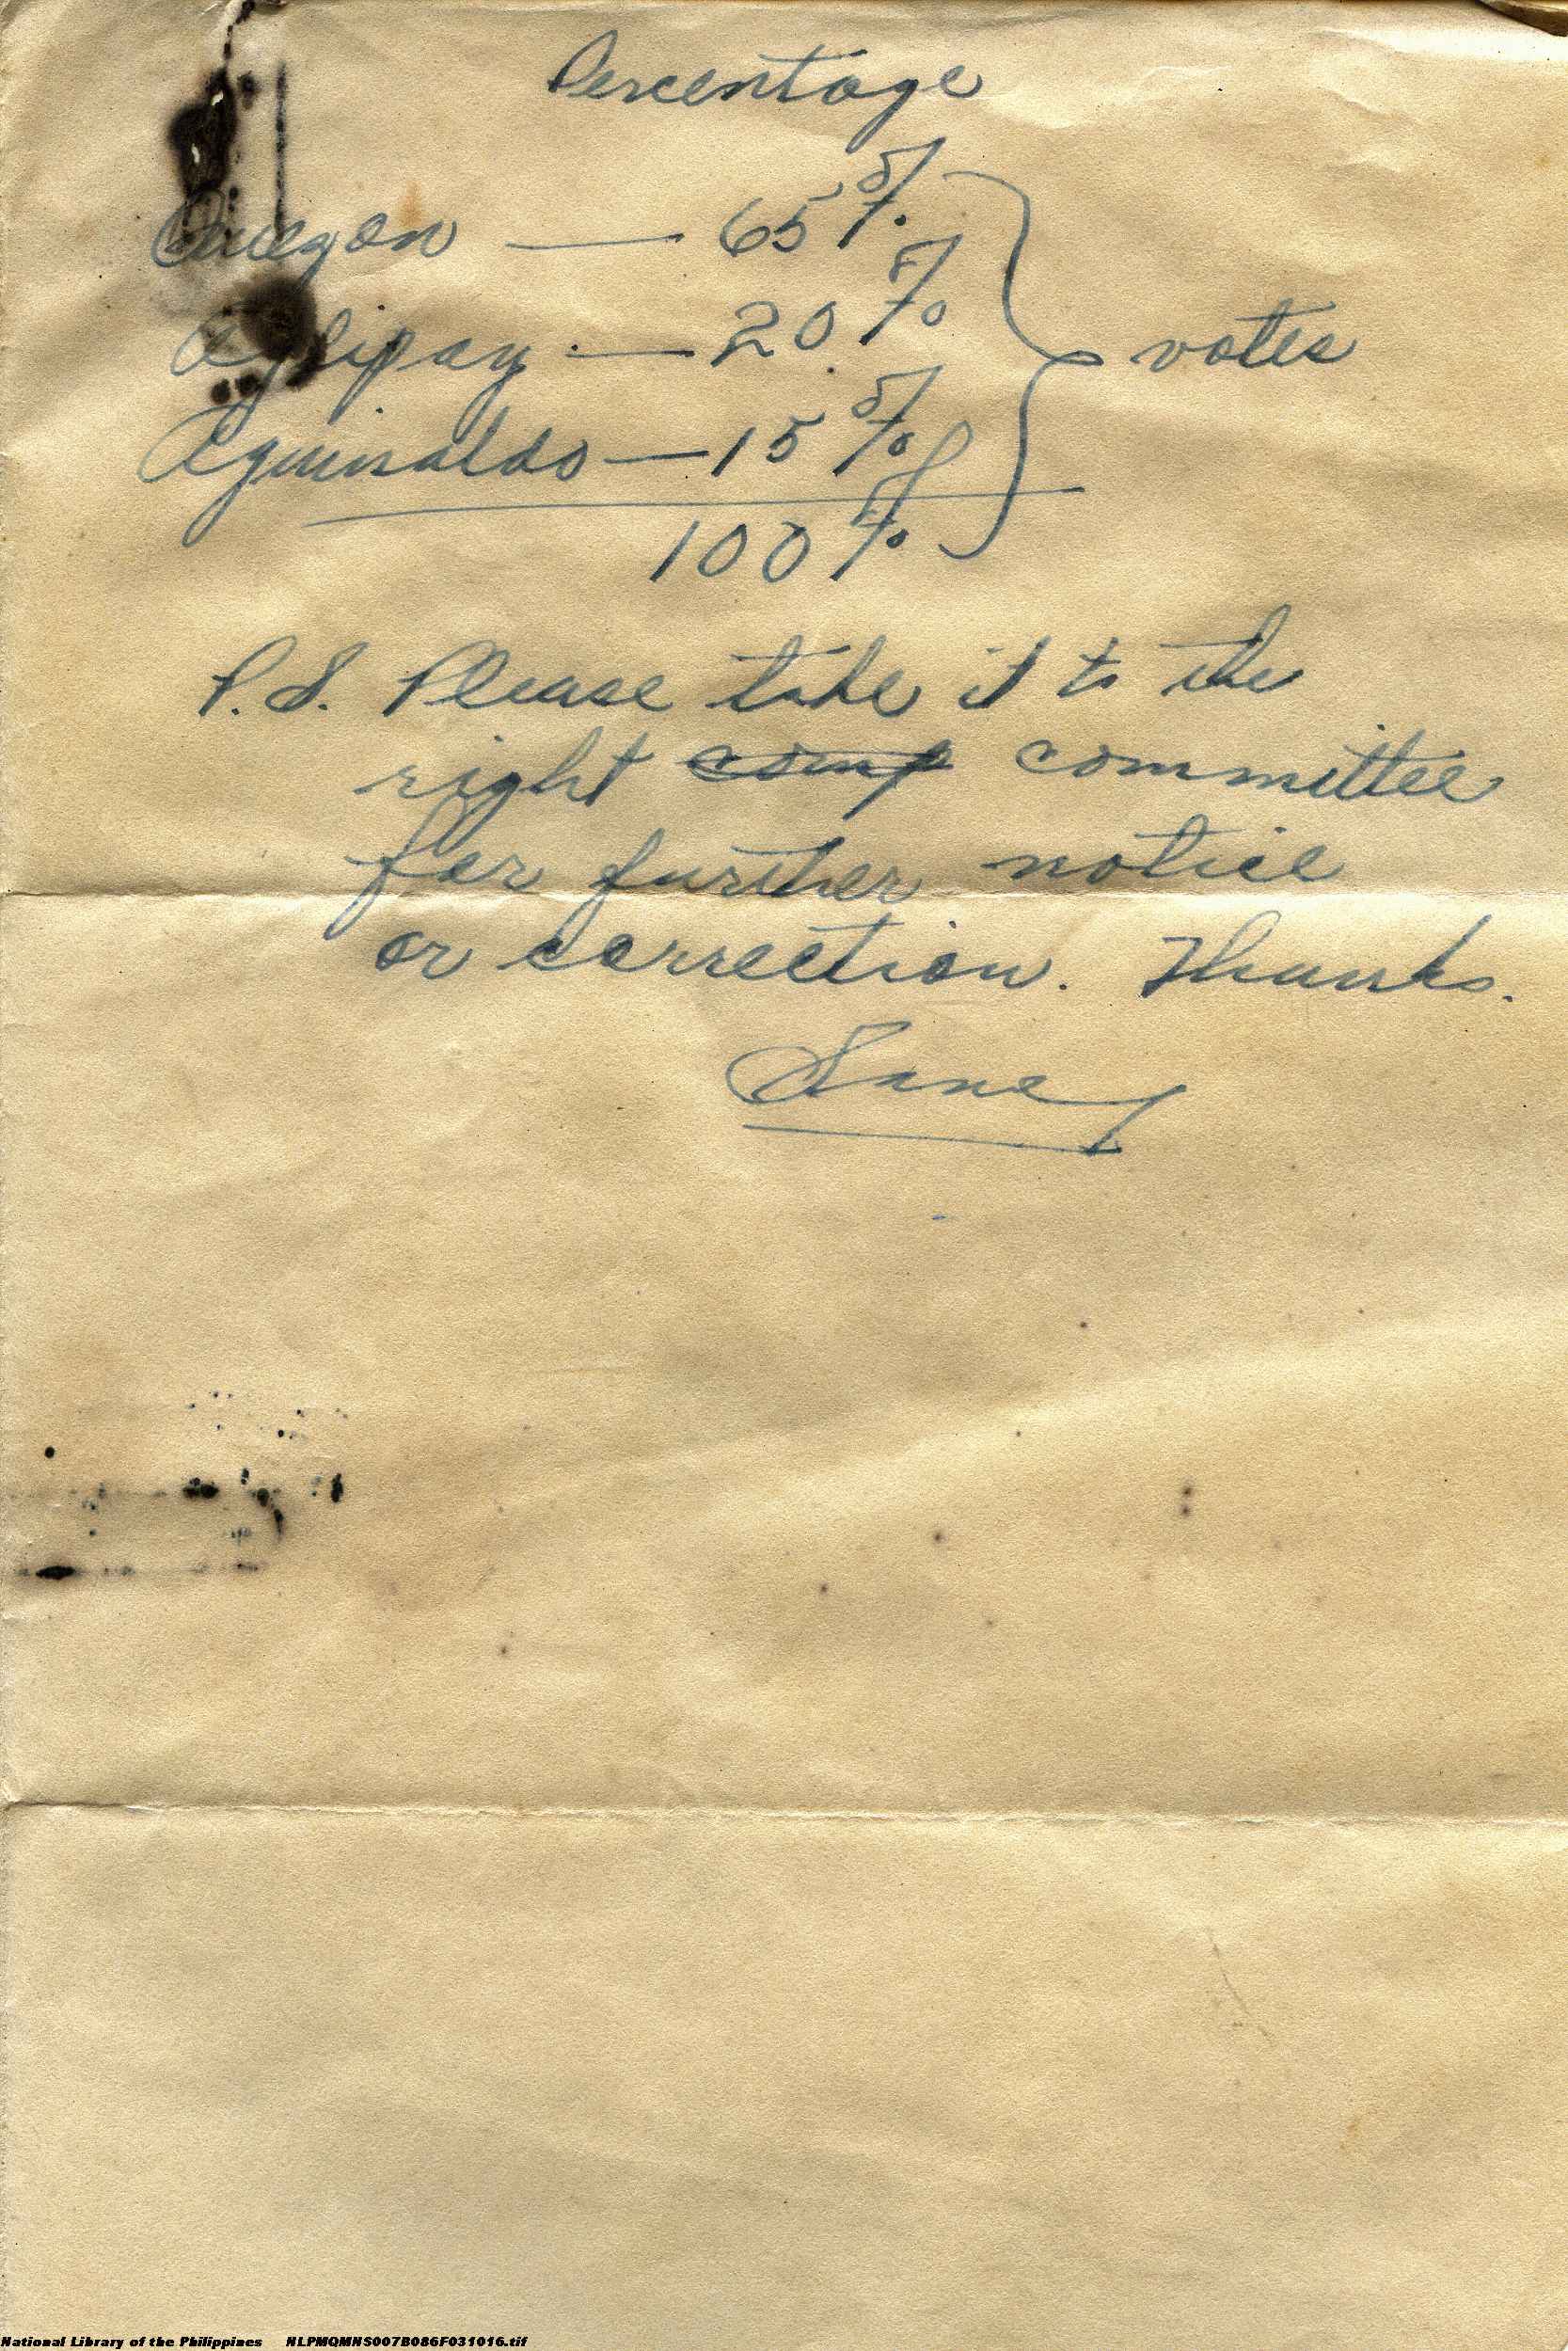 Percentage
Quezon — 65%
Aglipay — 20% votes
Aguinaldo — 15%
100%
P.S. Please take it to the
right comp committee
for further notice
or correction. Thanks.
National Library of the Philippines NLPMQMNS007B086F031016.tif